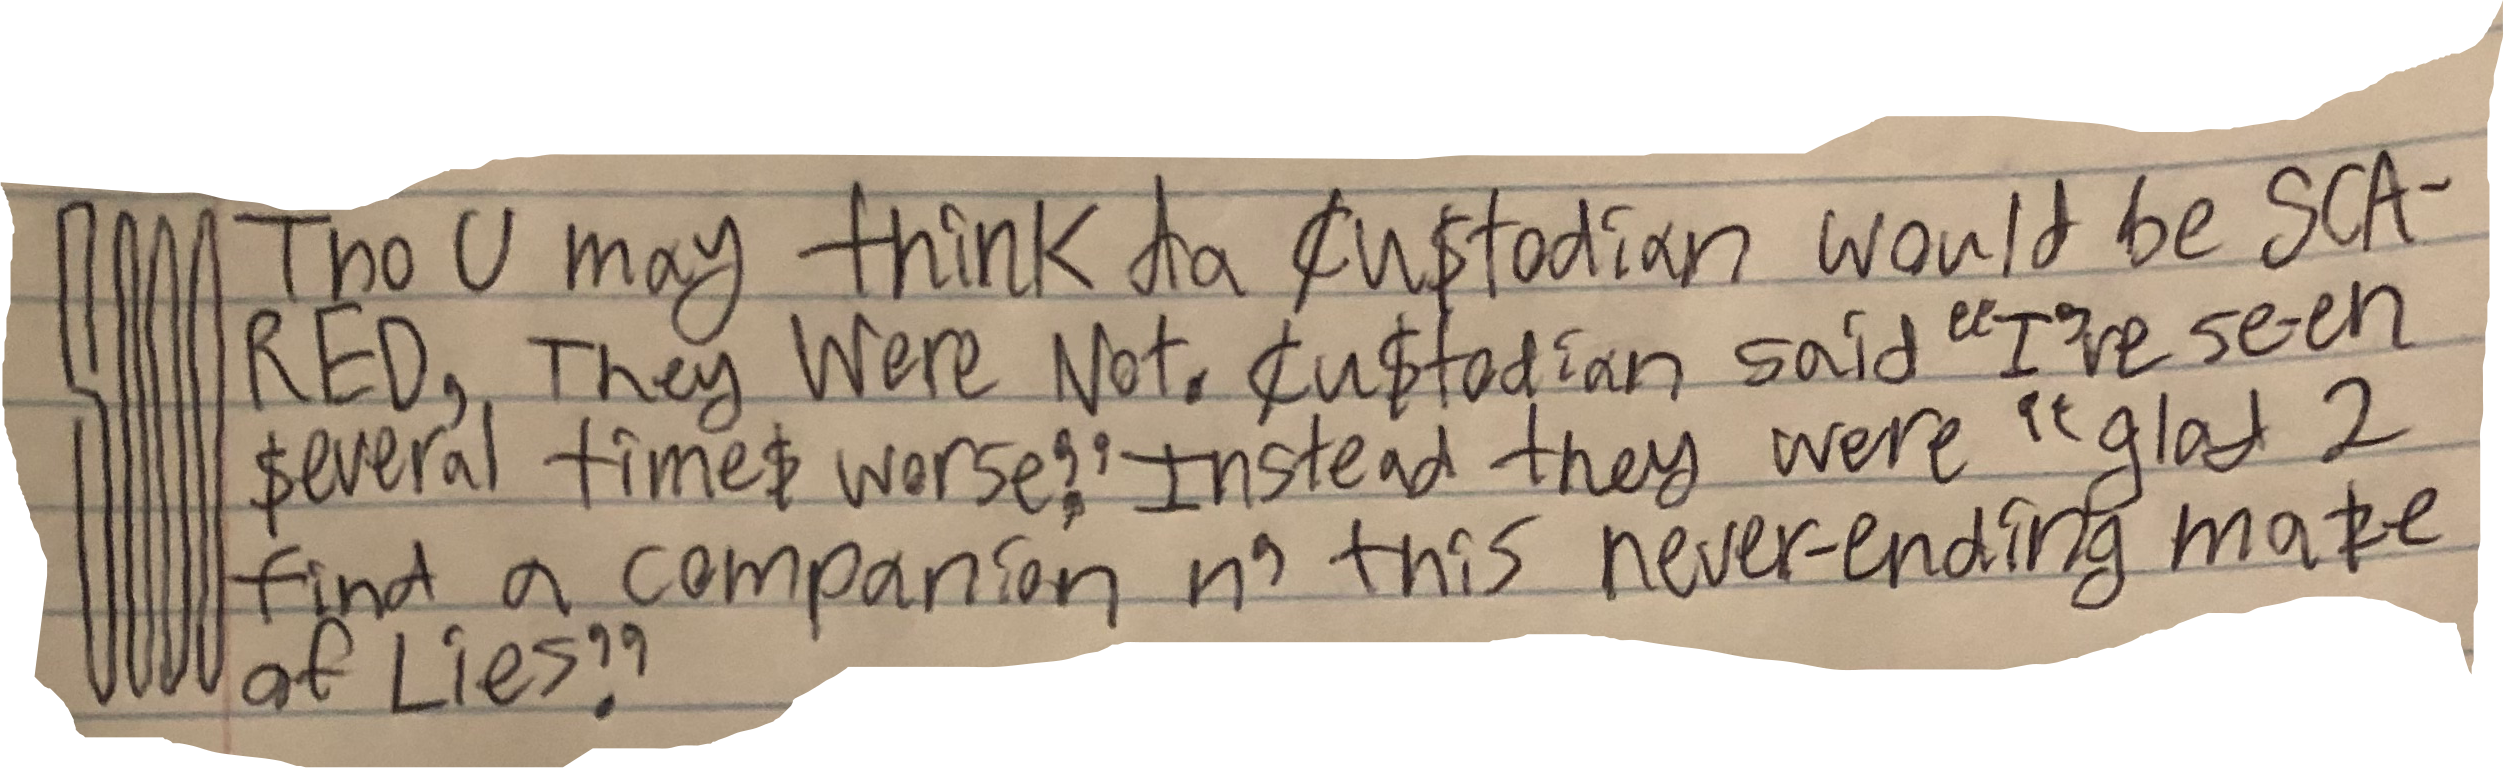 Tho U may think da ¢u$todian would be SCA-
RED, They Were Not. ¢u$todian said "I've seen
$everal time$ worse." Instead they were "glad 2
find a companion n' this never-ending maze
of Lies."